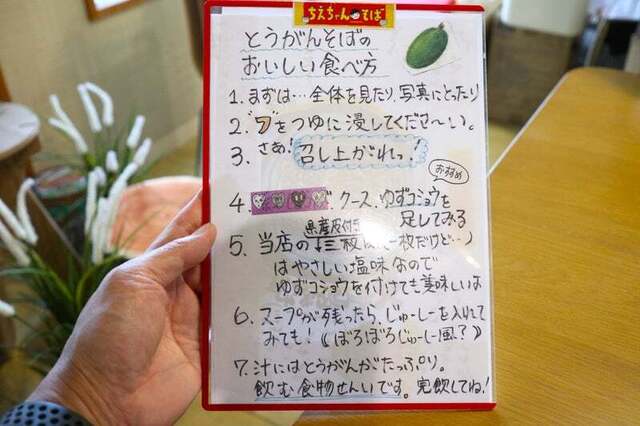 ちえちゃんのそば
とうがんそばの
おいしい食べ方
1. まずは…全体を見たり、写真にとったり
2. をつゆに浸してくださ〜い。
3. さあ!召し上がれっ!
おすすめ
4. クース、ゆずコショウを
足してみる
県産皮付
5. 当店の三枚
一枚だけど…)
はやさしい塩味なので
ゆずコショウを付けても美味しいよ
6. スープが残ったら、じゅーしーを入れて
みても!《ぼろぼろじゅーしー風?》
7. 汁にはとうがんがたっぷり。
飲む食物せんいです。完飲してね!